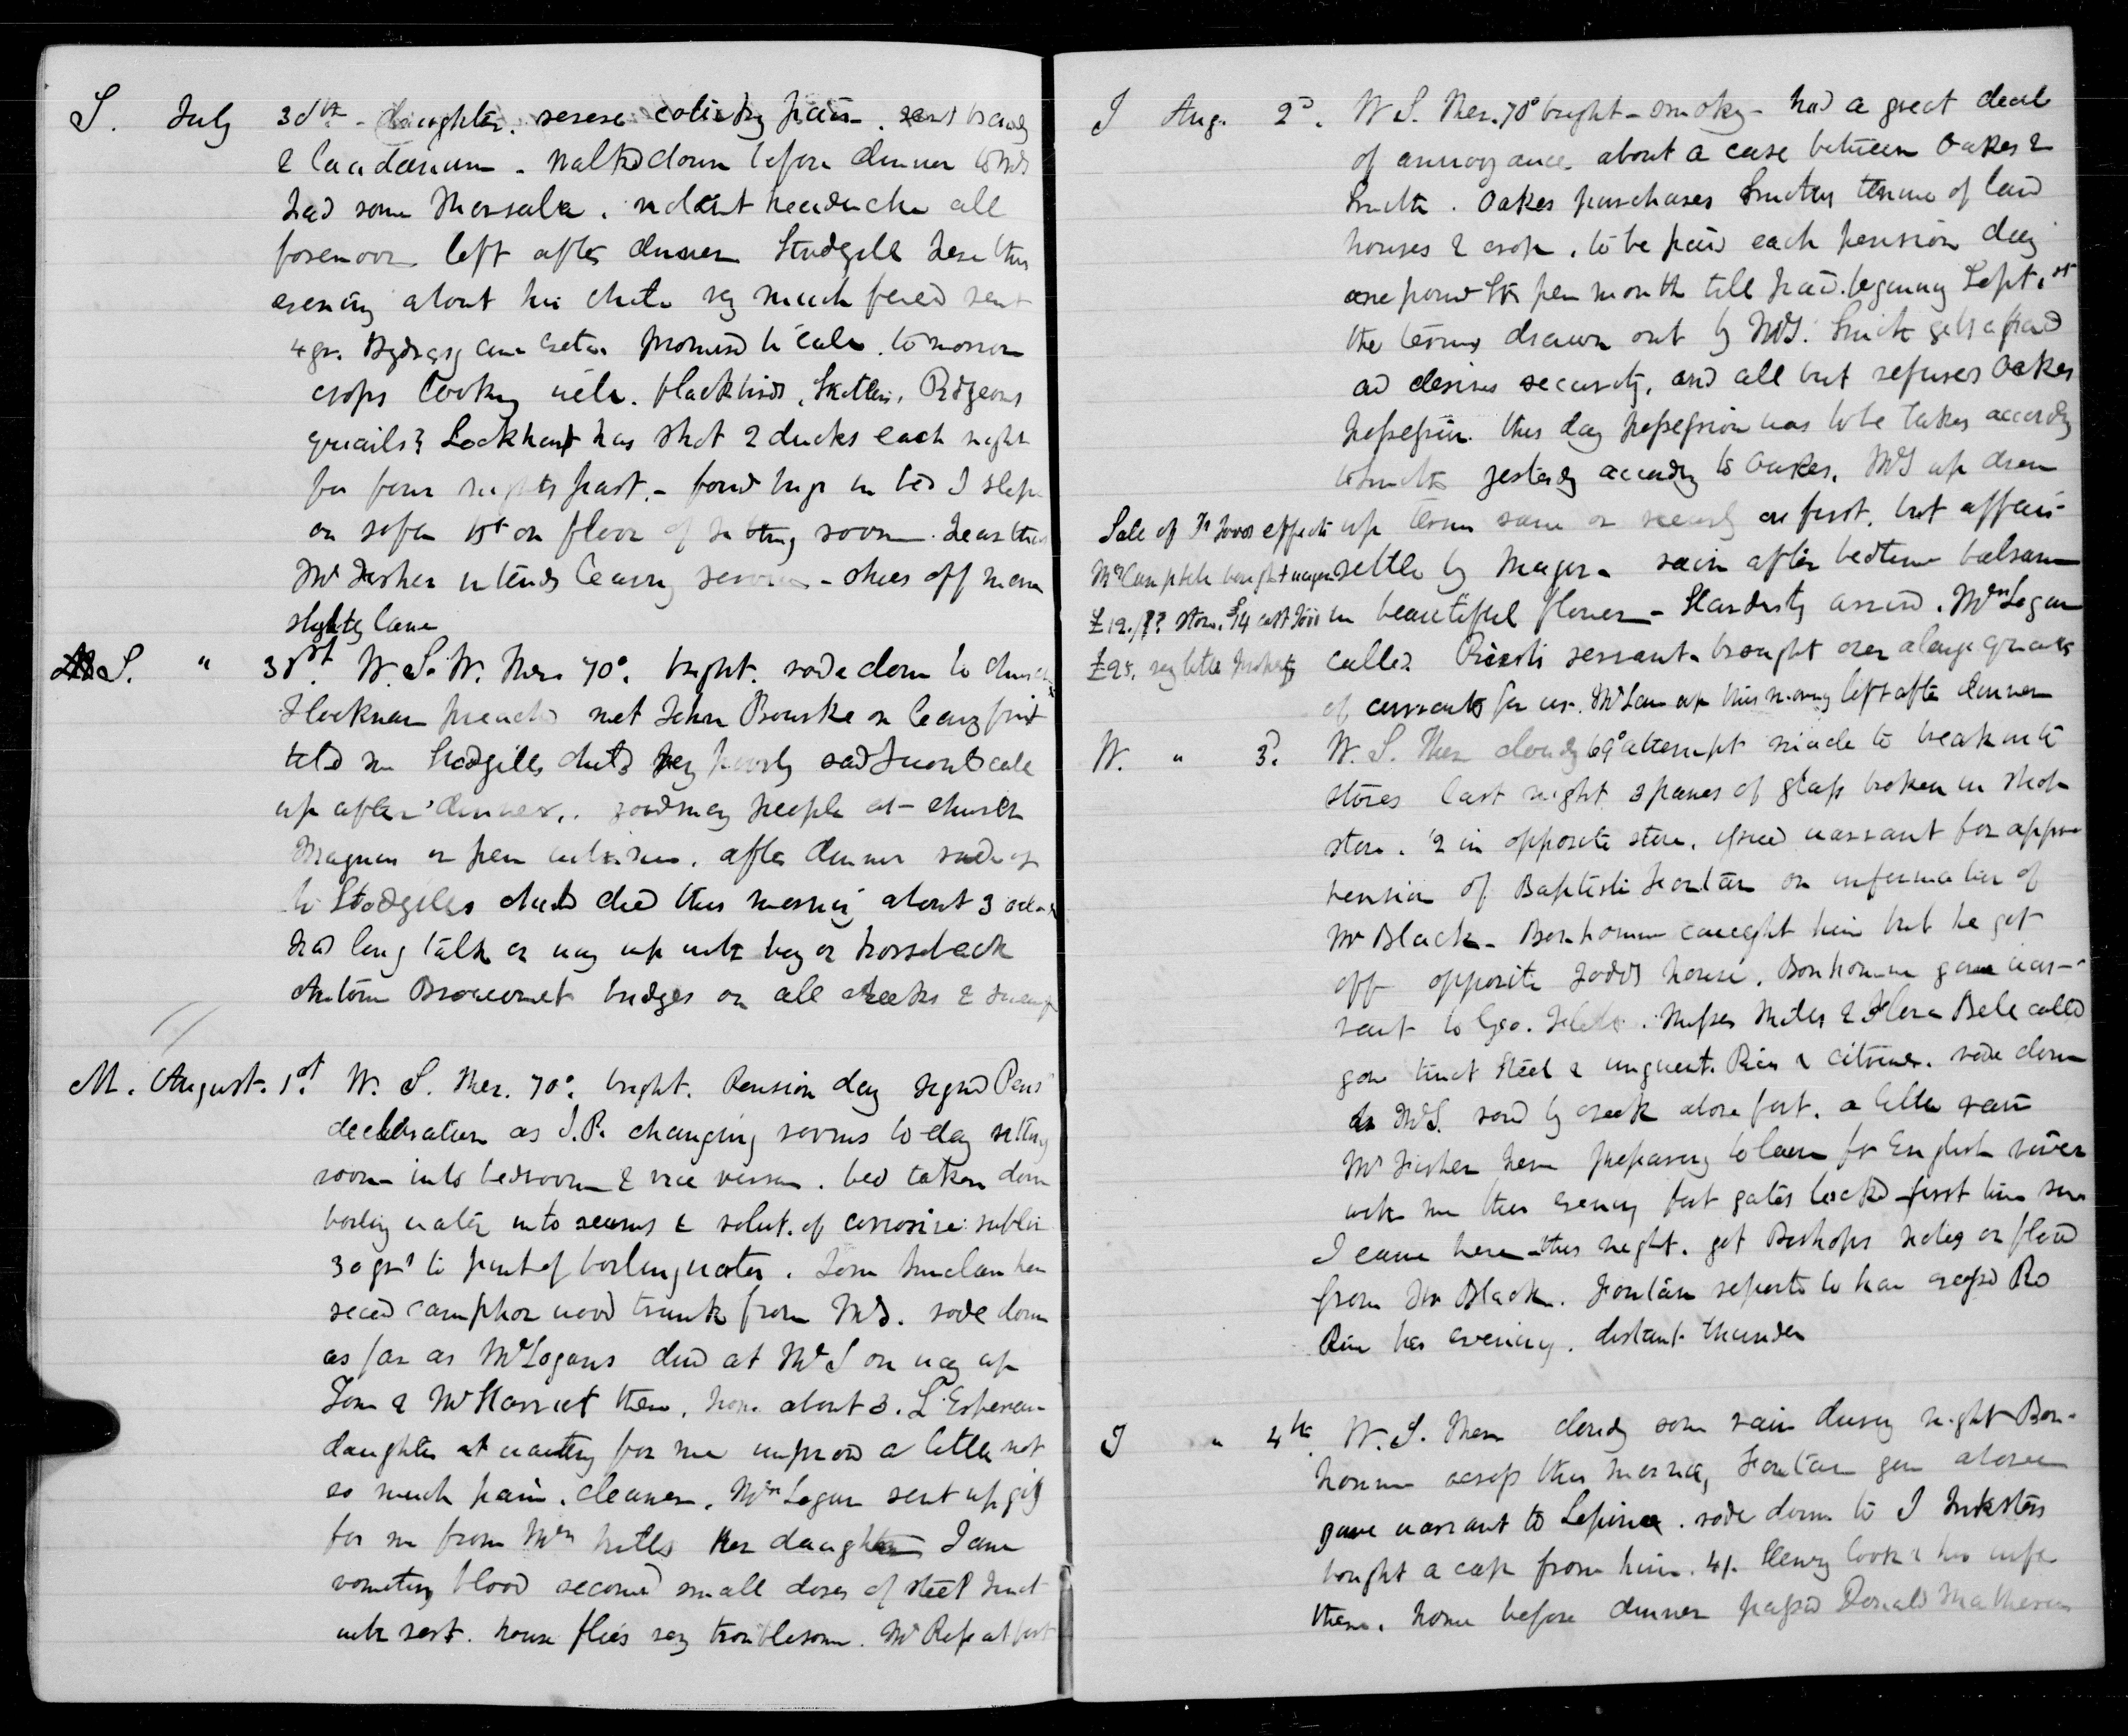 S. July 30th - daughter. severe colicky pain. sent brandy
& laudanum. Walked down before dinner to McD
had some Marsala. violent headache all
forenoon left after dinner Stodgill here this
evening about his child very much fevered sent
4 grs. Hydrarg cum creta promised to call tomorrow
crops looking well. blackbirds, Pidgeons
quails? Lockhart has shot 2 ducks each night
for four nights past. - found bugs in bed I slept
on sofa on floor of sitting room. hear that
Mr Fisher intends leaving service - shoes off mare
slightly lame
S. " 31st. W. S. W. Ther. 70°. bright. rode down to church
preached met John Bourke on leaving fort
told me Stodgills child very poorly said I would call
up after dinner. good many people at church
after dinner rode up
to Stodgills child died this morning about 3 oclock
had long talk on way up with boy on horseback
Antoine bridges on all creeks &
M. August. 1st. W. S. Ther. 70°. bright. Pension day signed Pens
declaration as J.P. changing rooms to-day sitting
room into bedroom & vice versa. bed taken down
boiling water into seams & solut. of corrosive sublim
30 grs to pint of boiling water. Tom Sinclair here
recd camphor wood trunk from McD. rode down
as far as Mr Logans dined at McD on way up
Tom & Mr Harriet there, home about 3. L'Esperance
daughter waiting for me improved a little not
so much pain. cleaner. Mrs Logan sent up gig
for me from Mrs Mills her daughter Jane
vomiting blood recomd small doses of steel tinct
with rest. house flies very troublesome. Mr Ross at fort
T Aug. 2d. W S. Ther. 70° bright - smoky - had a great deal
of annoyance about a case between Oakes &
Smith. Oakes purchases Smiths tenure of land
houses & crop. to be paid each pension day
one pound Stg per month till paid. beginning Sept. 1st
the terms drawn out by McD. Smith gets afraid
and desires security, and all but refuses Oakes
possession. this day possession was to be taken according
to Smith yesterday according to Oakes. McD up drew
up terms same or nearly as first, but affair
settled by Major - rain after bedtime balsam
in beautiful flower - Hardisty arrived. Mrs Logan
called servant brought over a large quantity
of currants for us. Mr Lane up this morning left after dinner
Sale of Dr Todds effects
Mr Campbell bought wagon
£12./?? stove. £14 cost Todd
£25. very little
W. " 3d. W. S. Ther cloudy 69° attempt made to break into
stores last night 3 panes of glass broken in shop
store. 2 in opposite store. issued warrant for appre-
hension of Baptiste Fontain on information of
Mr Black - Bonhomme caught him but he got
off opposite Todds house. Bonhomme gave war-
rant to Geo. Misses Mills & Flora Bell called
gave tinct Steel & unguent. Picis & citrine. rode down
to McD. road by creek above fort. a little rain
Mr Fisher here preparing to leave for English river
with me this evening fort gates locked first time since
I came here this night. got Bishops notes on flood
from Mr Black. Fontain reported to have crossed Red
River this evening. distant thunder
T " 4th. W. S. Ther cloudy some rain during night Bon-
homme across this morning, Fontain gone above
gave warrant to Lepine. rode down to J Inksters
bought a cap from him. 4/. Henry Cook & his wife
there. home before dinner passed Donald Matheson